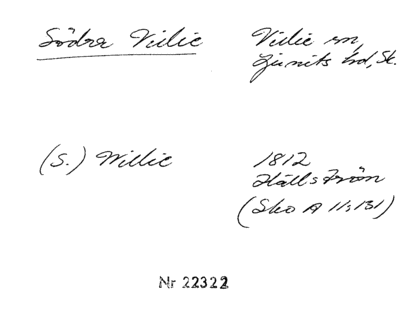 Södra Villie
Villie sn,
Ljunits hd, Sk.
(S.) Willie
1812
Hällström
(Sko A 11:131)
Nr 22322